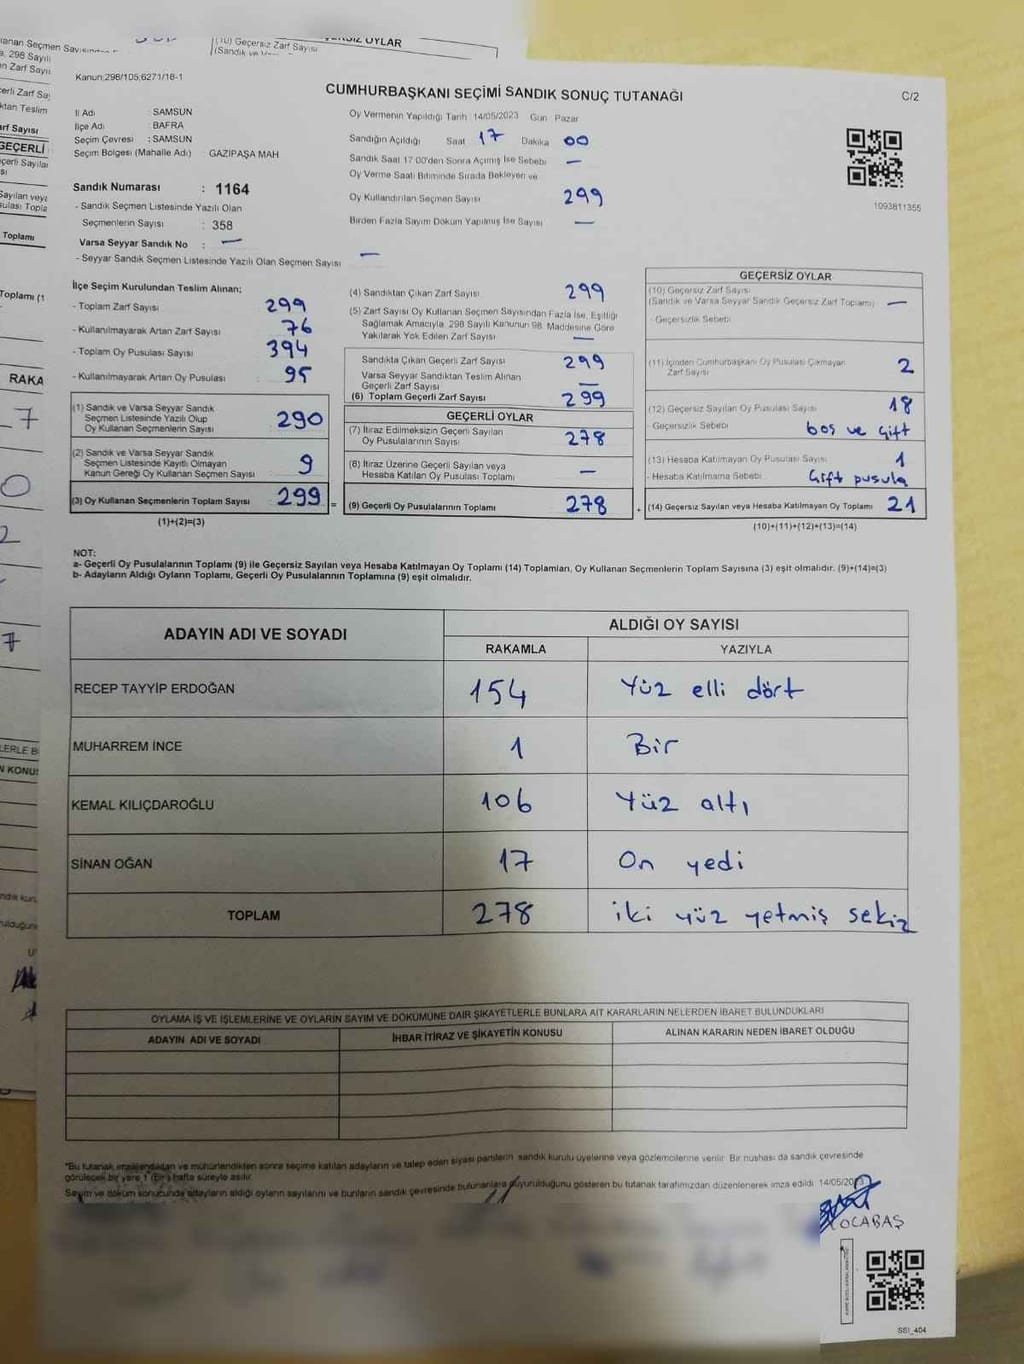 Kanun;298/105;6271/18-1
CUMHURBAŞKANI SEÇİMİ SANDIK SONUÇ TUTANAĞI
C/2
İl Adı : SAMSUN
İlçe Adı : BAFRA
Seçim Çevresi : SAMSUN
Seçim Bölgesi (Mahalle Adı) : GAZİPAŞA MAH
Sandık Numarası : 1164
- Sandık Seçmen Listesinde Yazılı Olan
Seçmenlerin Sayısı : 358
Varsa Seyyar Sandık No : —
- Seyyar Sandık Seçmen Listesinde Yazılı Olan Seçmen Sayısı —
Oy Vermenin Yapıldığı Tarih 14/05/2023 Gün Pazar
Sandığın Açıldığı Saat 17 Dakika 00
Sandık Saat 17:00'den Sonra Açılmış İse Sebebi —
Oy Verme Saati Bitiminde Sırada Bekleyen ve
Oy Kullandırılan Seçmen Sayısı 299
Birden Fazla Sayım Döküm Yapılmış İse Sayısı —
1093811355
İlçe Seçim Kurulundan Teslim Alınan;
- Toplam Zarf Sayısı 299
- Kullanılmayarak Artan Zarf Sayısı 76
- Toplam Oy Pusulası Sayısı 394
- Kullanılmayarak Artan Oy Pusulası : 95
(1) Sandık ve Varsa Seyyar Sandık
Seçmen Listesinde Yazılı Olup
Oy Kullanan Seçmenlerin Sayısı 290
(2) Sandık ve Varsa Seyyar Sandık
Seçmen Listesinde Kayıtlı Olmayan
Kanun Gereği Oy Kullanan Seçmen Sayısı 9
(3) Oy Kullanan Seçmenlerin Toplam Sayısı 299 =
(1)+(2)=(3)
(4) Sandıktan Çıkan Zarf Sayısı 299
(5) Zarf Sayısı Oy Kullanan Seçmen Sayısından Fazla İse, Eşitliği
Sağlamak Amacıyla, 298 Sayılı Kanunun 98. Maddesine Göre
Yakılarak Yok Edilen Zarf Sayısı —
Sandıkta Çıkan Geçerli Zarf Sayısı 299
Varsa Seyyar Sandıktan Teslim Alınan
Geçerli Zarf Sayısı —
(6) Toplam Geçerli Zarf Sayısı 299
GEÇERLİ OYLAR
(7) İtiraz Edilmeksizin Geçerli Sayılan
Oy Pusulalarının Sayısı 278
(8) İtiraz Üzerine Geçerli Sayılan veya
Hesaba Katılan Oy Pusulası Toplamı —
(9) Geçerli Oy Pusulalarının Toplamı 278 +
GEÇERSİZ OYLAR
(10) Geçersiz Zarf Sayısı
(Sandık ve Varsa Seyyar Sandık Geçersiz Zarf Toplamı) —
- Geçersizlik Sebebi
(11) İçinden Cumhurbaşkanı Oy Pusulası Çıkmayan
Zarf Sayısı 2
(12) Geçersiz Sayılan Oy Pusulası Sayısı 18
- Geçersizlik Sebebi boş ve çift
(13) Hesaba Katılmayan Oy Pusulası Sayısı 1
- Hesaba Katılmama Sebebi çift pusula
(14) Geçersiz Sayılan veya Hesaba Katılmayan Oy Toplamı 21
(10)+(11)+(12)+(13)=(14)
NOT:
a- Geçerli Oy Pusulasının Toplamı (9) ile Geçersiz Sayılan veya Hesaba Katılmayan Oy Toplamı (14) Toplamları, Oy Kullanan Seçmenlerin Toplam Sayısına (3) eşit olmalıdır. (9)+(14)=(3)
b- Adayların Aldığı Oyların Toplamı, Geçerli Oy Pusulalarının Toplamına (9) eşit olmalıdır.
ADAYIN ADI VE SOYADI
ALDIĞI OY SAYISI
RAKAMLA YAZIYLA
RECEP TAYYİP ERDOĞAN 154 Yüz elli dört
MUHARREM İNCE 1 Bir
KEMAL KILIÇDAROĞLU 106 Yüz altı
SİNAN OĞAN 17 On yedi
TOPLAM 278 iki yüz yetmiş sekiz
OYLAMA İŞ VE İŞLEMLERİNE VE OYLARIN SAYIM VE DÖKÜMÜNE DAİR ŞİKAYETLERLE BUNLARA AİT KARARLARIN NELERDEN İBARET BULUNDUKLARI
ADAYIN ADI VE SOYADI İHBAR İTİRAZ VE ŞİKAYETİN KONUSU ALINAN KARARIN NEDEN İBARET OLDUĞU
*Bu tutanak imzalandıktan ve mühürlendikten sonra seçime katılan adayların ve talep eden siyasi partilerin sandık kurulu üyelerine veya gözlemcilerine verilir. Bir nüshası da sandık çevresinde
görülecek bir yere 1 (bir) hafta süreyle asılır.
Sayım ve döküm sonucunda adayların aldığı oyların sayılarını ve bunların sandık çevresinde bulunanlara duyurulduğunu gösteren bu tutanak tarafımızdan düzenlenerek imza edildi. 14/05/2023
KOCABAŞ
SSI_404